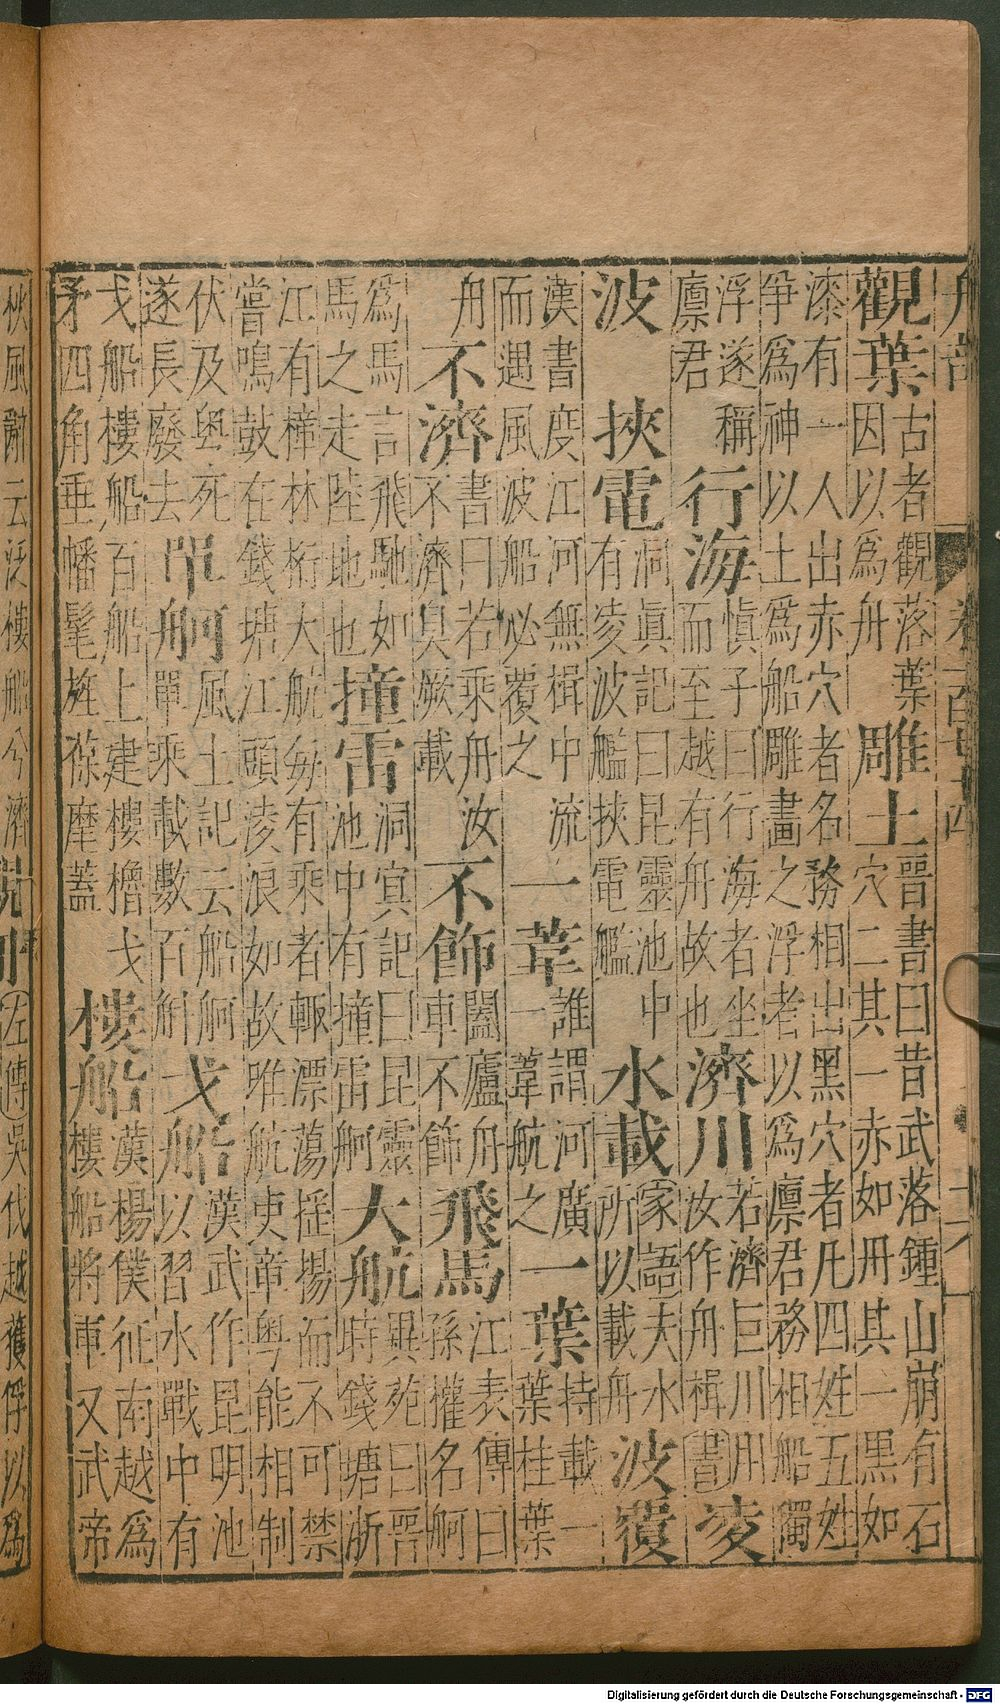 舟部 卷一百
觀葉 古者觀落葉因以爲舟 雕土 晉書曰昔武落鍾山崩有石穴二其一赤如丹其一黑如
漆有一人出赤穴者名務相出黑穴者凡四姓五姓爭爲神以土爲船雕畫之浮者以爲廩君務相船獨
浮遂稱廩君 行海 愼子曰行海者坐而至越有舟故也 濟川 若濟巨川用汝作舟楫書 凌
波 挾電 洞眞記曰昆靈池中有凌波艦挾電艦 水載 家語夫水所以載舟 波覆
漢書度江河無楫中流而遇風波船必覆之 一葦 誰謂河廣一葦航之 一葉 持載一葉桂葉
舟 不濟 書曰若乘舟汝不濟臭厥載 不飾 闔廬舟車不飾 飛馬 江表傳曰孫權名舸
爲馬言飛馳如馬之走陸地也 撞雷 洞冥記曰昆靈池中有撞雷舸 大航 異苑曰晉時錢塘浙
江有樟林桁大航每有乘者輒漂蕩揺揚而不可禁嘗鳴鼓在錢塘江頭凌浪如故唯航吏章粤能相制
伏及粤死遂長廢去 單舸 風土記云船舸單乘載數百斛 戈船 漢武作昆明池以習水戰中有
戈船樓船百船上建樓櫓戈矛四角垂幡髦旌葆麾蓋 樓船 漢楊僕征南越爲樓船將軍又武帝
秋風辭云泛樓船兮濟 左傳吳伐越獲俘以爲
Digitalisierung gefördert durch die Deutsche Forschungsgemeinschaft - DFG